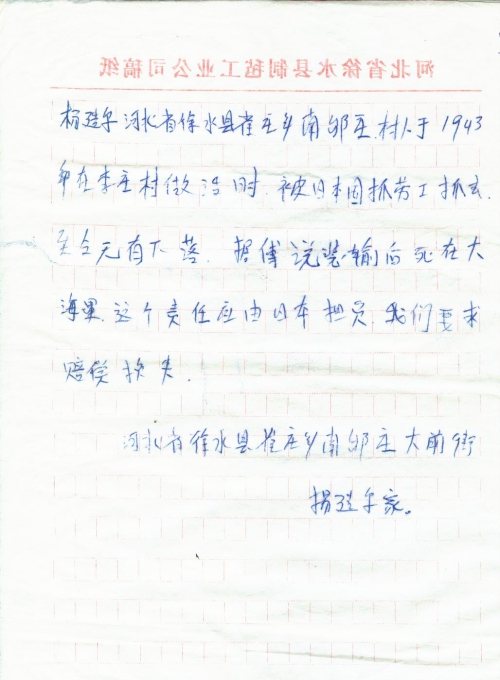 河北省徐水县制毡工业公司稿纸
杨造年河北省徐水县崔庄乡南邨庄村人于1943
年在李庄村做活时,被日本国抓劳工抓去.
至今无有下落.据传说装输后死在大
海里.这个责任应由日本担负.我们要求
赔偿损失.
河北省徐水县崔庄乡南邨庄大前街
杨造年家。